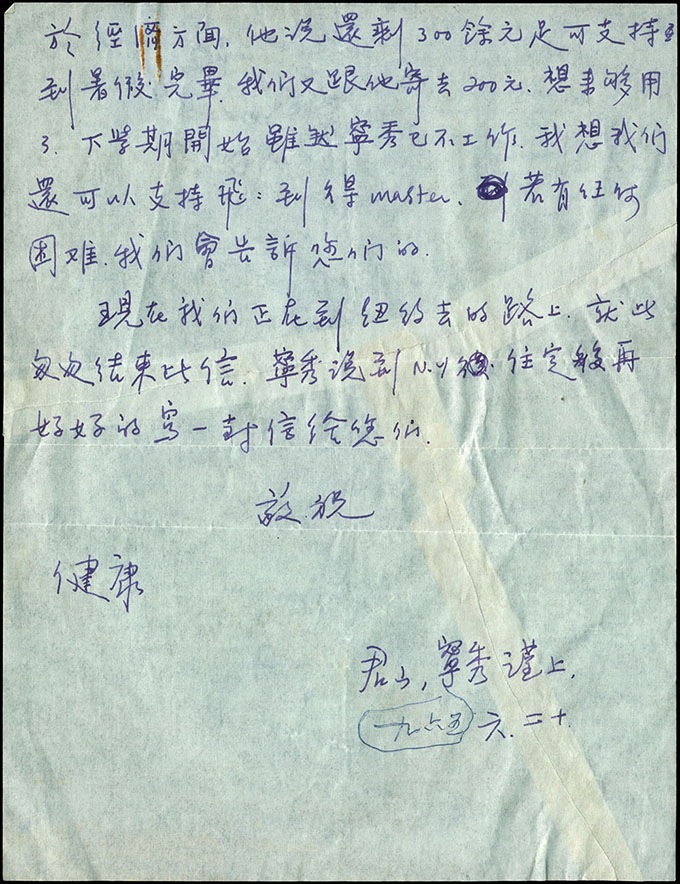 於經濟方面，他说還剩300餘元足可支持
到暑假完畢，我们又跟他寄去200元，想来够用
了．下学期開始雖然寧秀已不工作，我想我们
還可以支持飛：到得master．若有任何
困难，我们會告訴您们的．
現在我们正在到纽约去的路上．就此
匆匆结束此信．寧秀说到N.Y後．住定後再
好好的寫一封信给您们．
敬祝
健康
君山，寧秀謹上．
一九六五 六．二十．